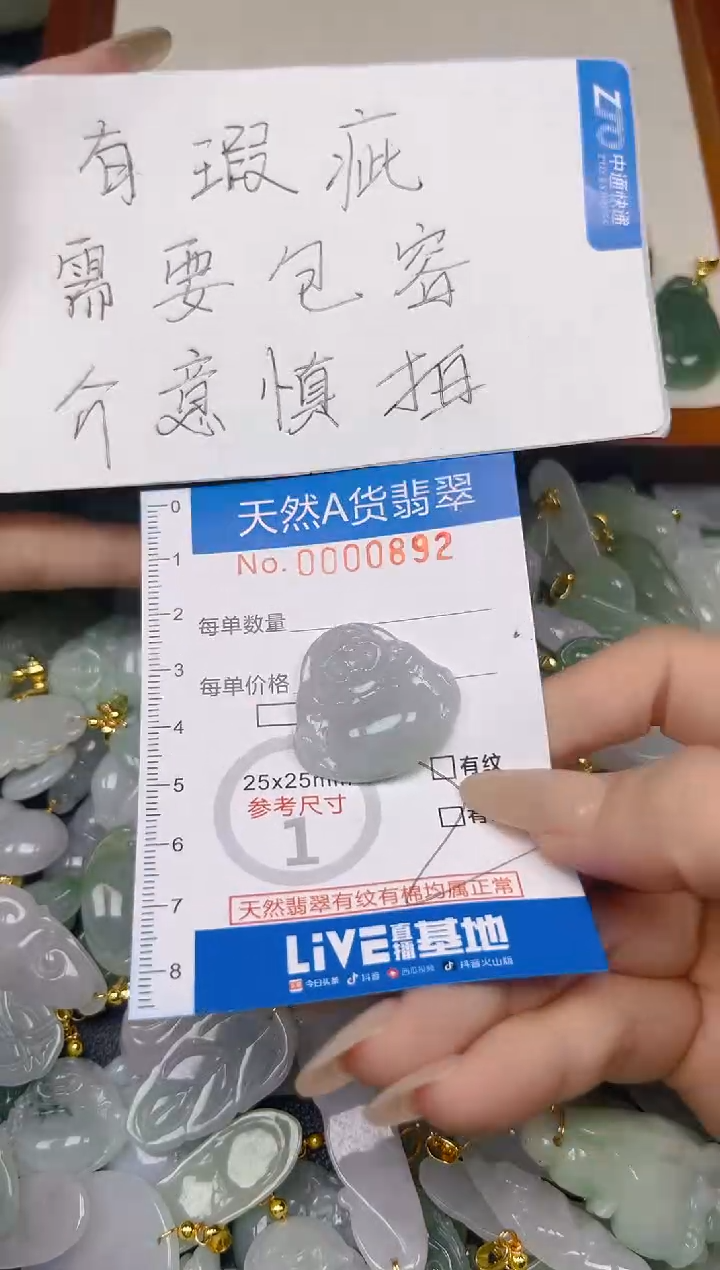 有瑕疵
需要包容
介意慎拍
ZTO
中通快递
0
1
2
3
4
5
6
7
8
天然A货翡翠
No. 0000892
每单数量
每单价格
有纹
25x25m
有
参考尺寸
1
天然翡翠有纹有棉均属正常
LiVE直播基地
今日头条 抖音 西瓜视频 抖音火山版